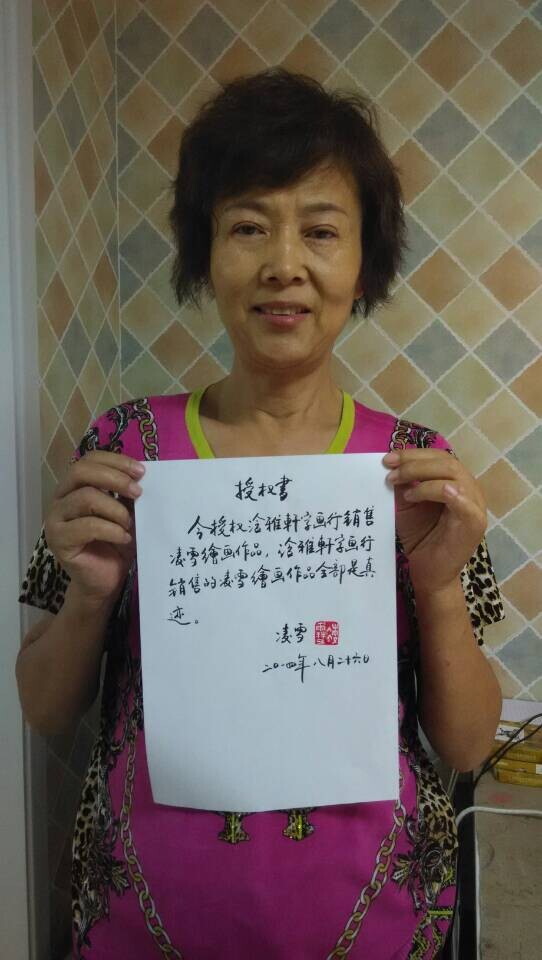 授权书
今授权洽雅軒字画行銷售
凌雪繪画作品，洽雅軒字画行
销售的凌雪繪画作品全部是真
迹。
凌雪
二〇一四年八月二十六日